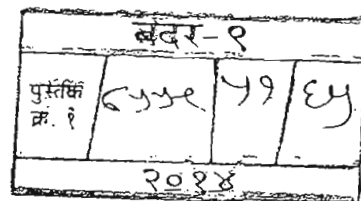 बदर-९
पुस्तक क्र. १ ८५५९ ५१ ६५
२०१४